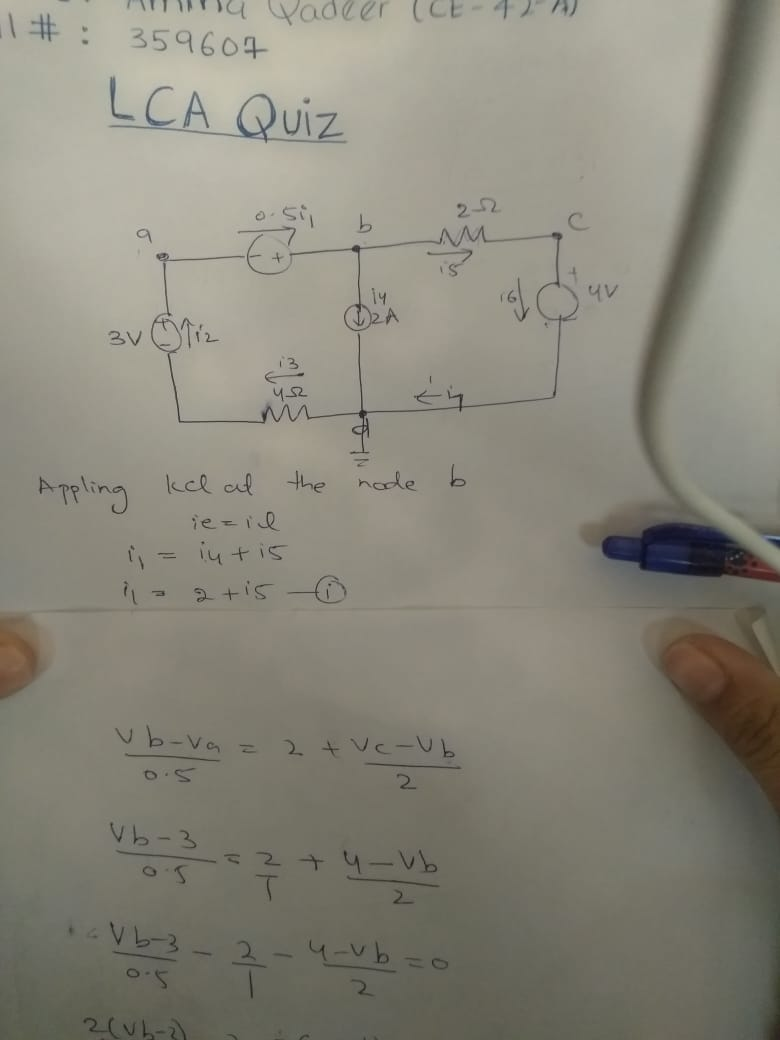 Amina Qadeer (CE-42-A)
ll # : 359607
LCA Quiz
0.5i₁
b
2Ω
c
a
i5
- +
i4
2A
i6
+
4V
-
3V
+
-
i2
i3
4Ω
i7
d
Appling kcl at the node b
ie = il
i₁ = i4 + i5
i₁ = 2 + i5 — (i)
Vb-Va/0.5 = 2 + Vc-Vb/2
Vb-3/0.5 = 2/1 + 4-Vb/2
Vb-3/0.5 - 2/1 - 4-Vb/2 = 0
2(Vb-3)